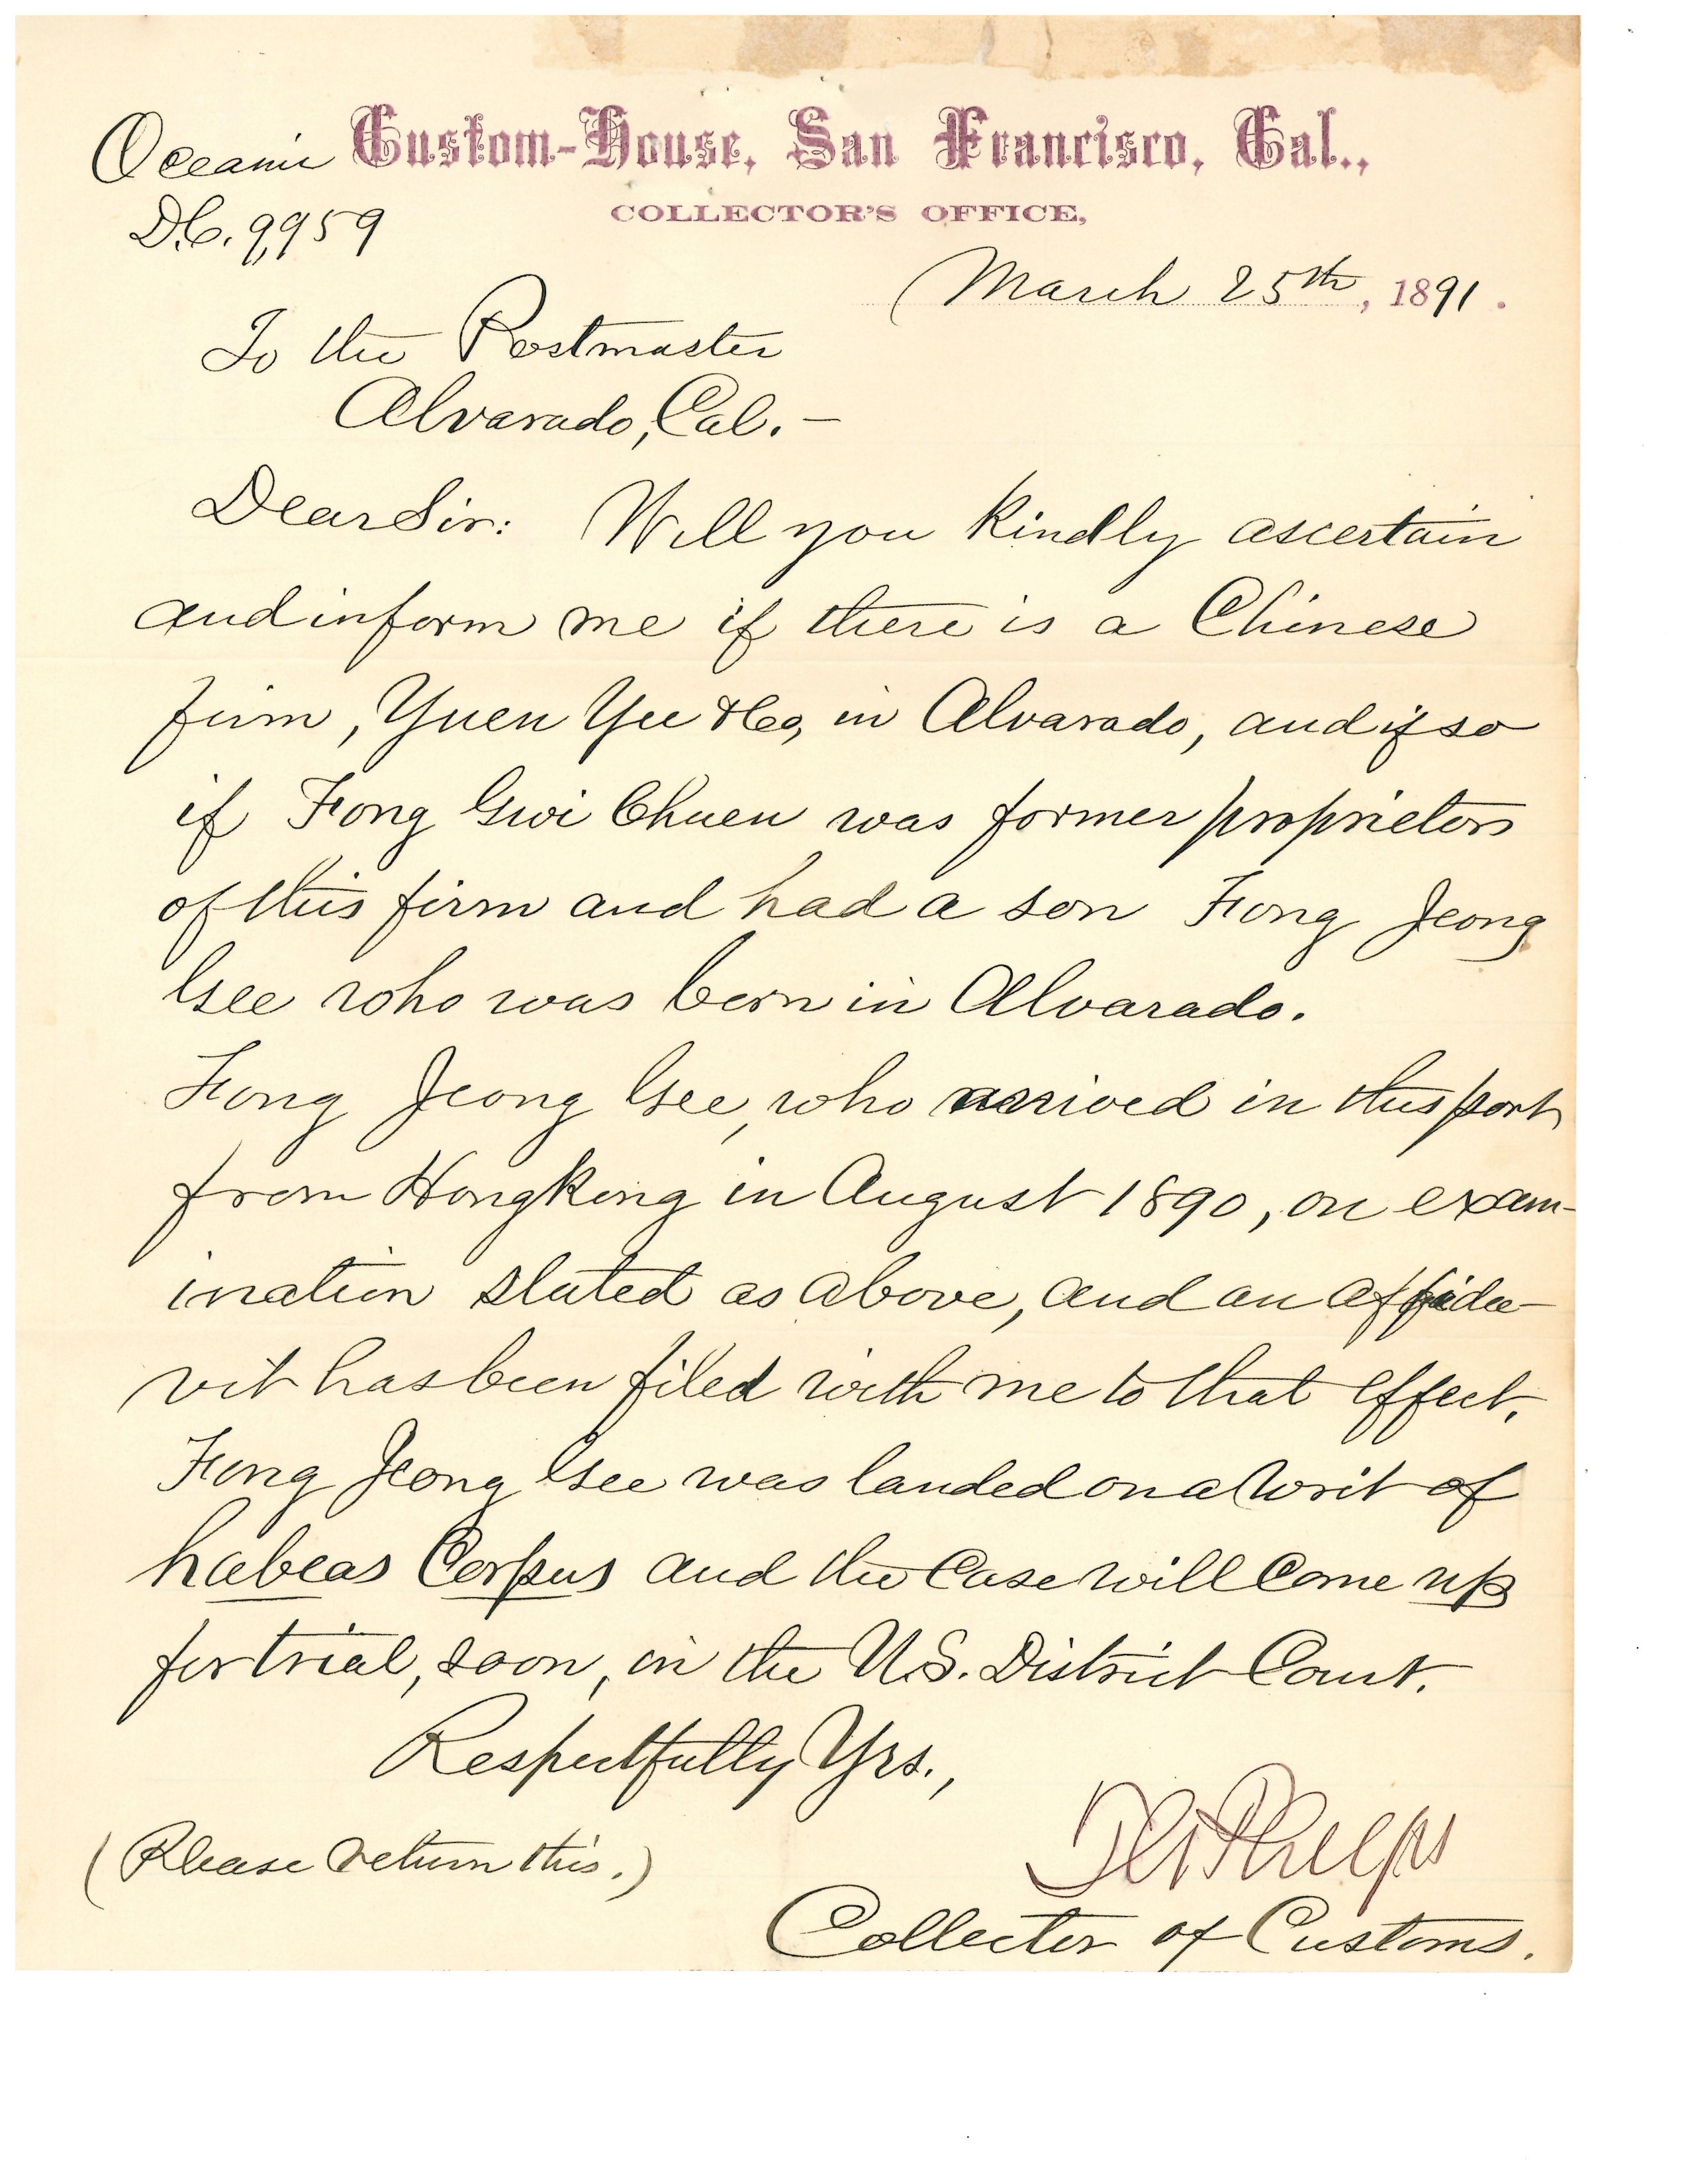 Oceanic Custom-House, San Francisco, Cal.,
COLLECTOR'S OFFICE,
D.C. 9,959
March 25th, 1891.
To the Postmaster
Alvarado, Cal. —
Dear Sir: Will you kindly ascertain
and inform me if there is a Chinese
firm, Yuen Yee & Co, in Alvarado, and if so
if Fong Gwi Chuen was former proprietor
of this firm and had a son Fong Jeong
Gee who was born in Alvarado.
Fong Jeong Gee, who arrived in this port
from Hongkong in August 1890, on exam-
ination stated as above, and an affida-
vit has been filed with me to that effect.
Fong Jeong Gee was landed on a Writ of
habeas Corpus and the Case will Come up
for trial, soon, in the U.S. District Court.
Respectfully Yrs.,
(Please return this.)
Phelps
Collector of Customs.